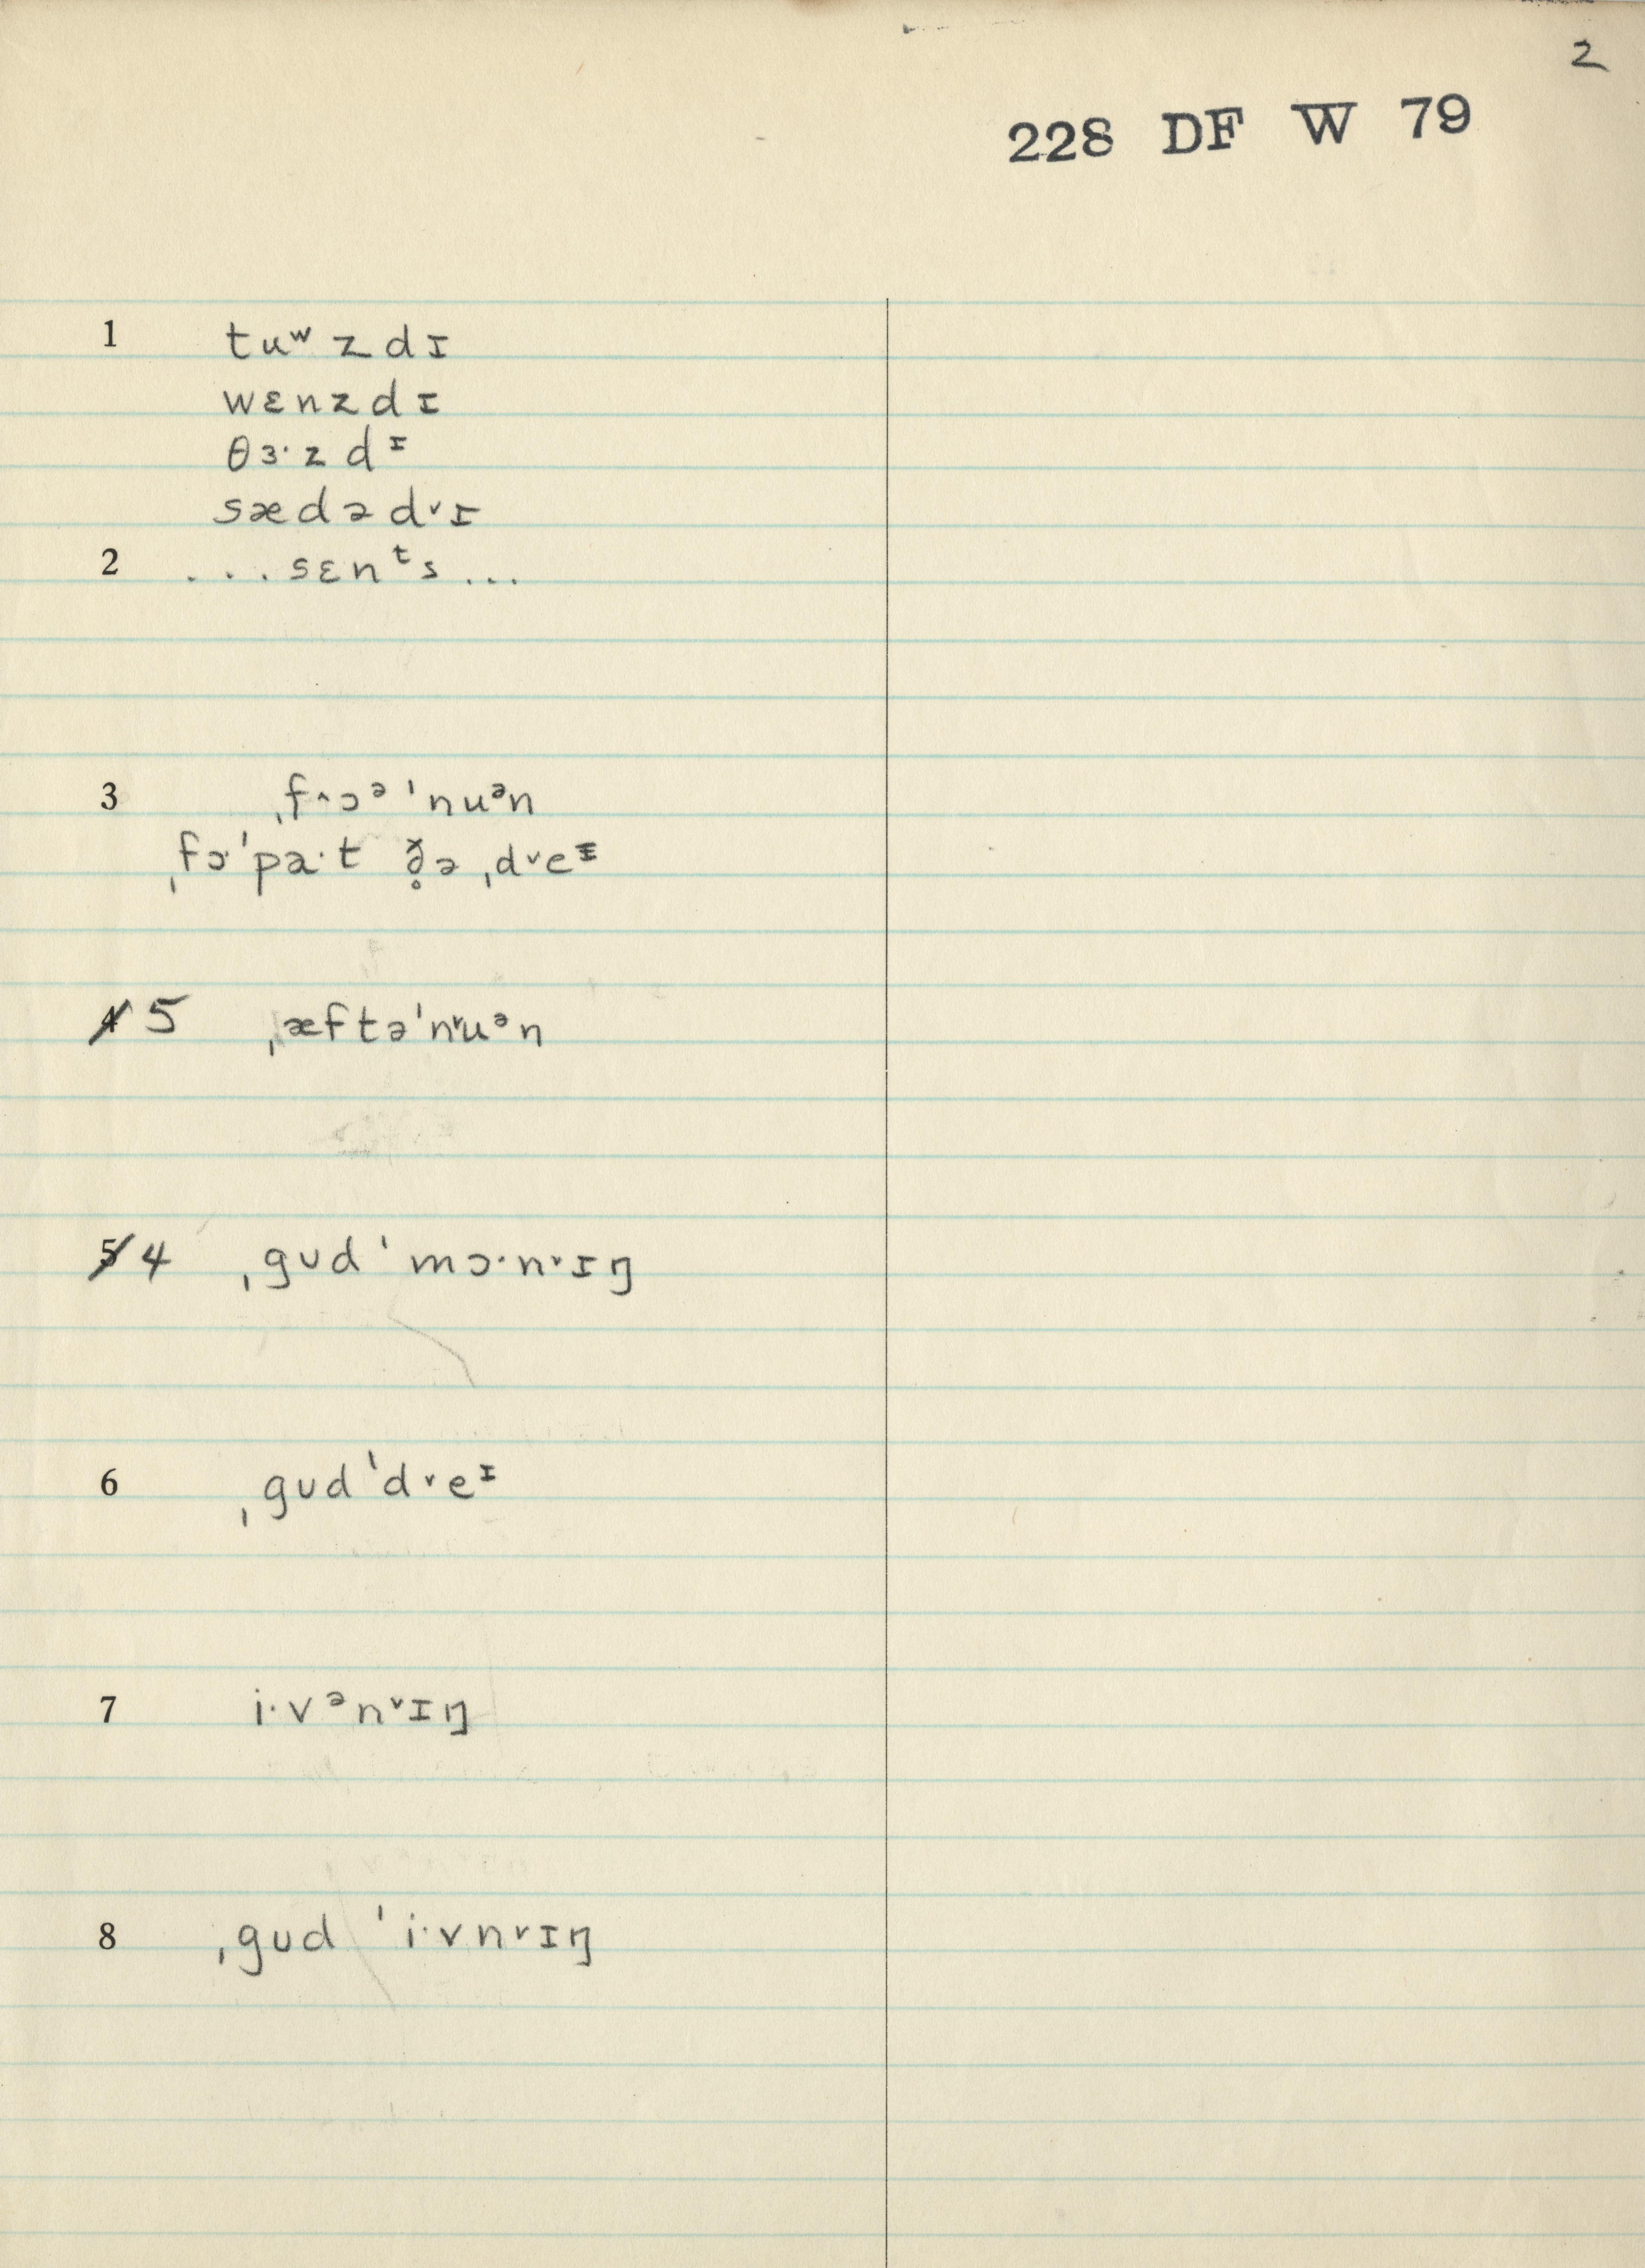 2
228 DF W 79
1 tuʷzdɪ
wɛnzdɪ
θɜ·zdᶦ
sædəd˅ɪ
2 ...sɛnᵗs...
3 ˌf˄ɔᵊˈnuᵊn
ˌfɔ·ˈpa·t ð̥ə ˌd˅eᶦ
4 5 ˌæftəˈn˅uᵊn
5 4 ˌgʊdˈmɔ·n˅ɪŋ
6 ˌgʊdˈd˅eᶦ
7 i·vᵊn˅ɪŋ
8 ˌgʊd ˈi·vn˅ɪŋ